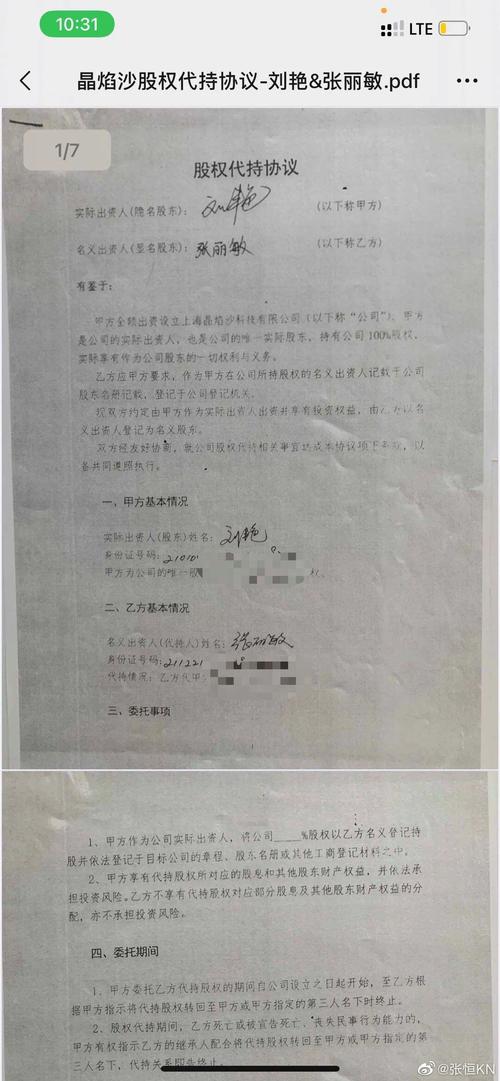 10:31
LTE
晶焰沙股权代持协议-刘艳&张丽敏.pdf
1/7
股权代持协议
实际出资人(隐名股东)：刘艳 (以下称甲方)
名义出资人(显名股东)：张丽敏 (以下称乙方)
有鉴于：
甲方全额出资设立上海晶焰沙科技有限公司（以下称“公司”），甲方
是公司的实际出资人，也是公司的唯一实际股东，持有公司100%股权，
实际享有作为公司股东的一切权利与义务。
乙方应甲方要求，作为甲方在公司所持股权的名义出资人记载于公司
股东名册记载、登记于公司登记机关。
现双方约定由甲方作为实际出资人出资并享有投资权益，由乙方以名
义出资人登记为名义股东。
双方经友好协商，就公司股权代持相关事宜达成本协议项下条款，以
各共同遵照执行。
一、甲方基本情况
实际出资人(股东)姓名：刘艳
身份证号码：21010
甲方为公司的唯一股 权。
二、乙方基本情况
名义出资人(代持人)姓名：张丽敏
身份证号码：211221
代持情况：乙方代甲
三、委托事项
1、甲方作为公司实际出资人，将公司____%股权以乙方名义登记持
股并依法登记于目标公司的章程、股东名册或其他工商登记材料之中。
2、甲方享有代持股权所对应的股息和其他股东财产权益，并依法承
担投资风险。乙方不享有代持股权对应部分股息及其他股东财产权益的分
配，亦不承担投资风险。
四、委托期间
1、甲方委托乙方代持股权的期间自公司设立之日起开始，至乙方根
据甲方指示将代持股权转回至甲方或甲方指定的第三人名下时终止。
2、股权代持期间，乙方死亡或被宣告死亡、丧失民事行为能力的，
甲方有权指示乙方的继承人配合将代持股权转回至甲方或甲方指定的第
三人名下，代持关系即告终止。
@张恒KN